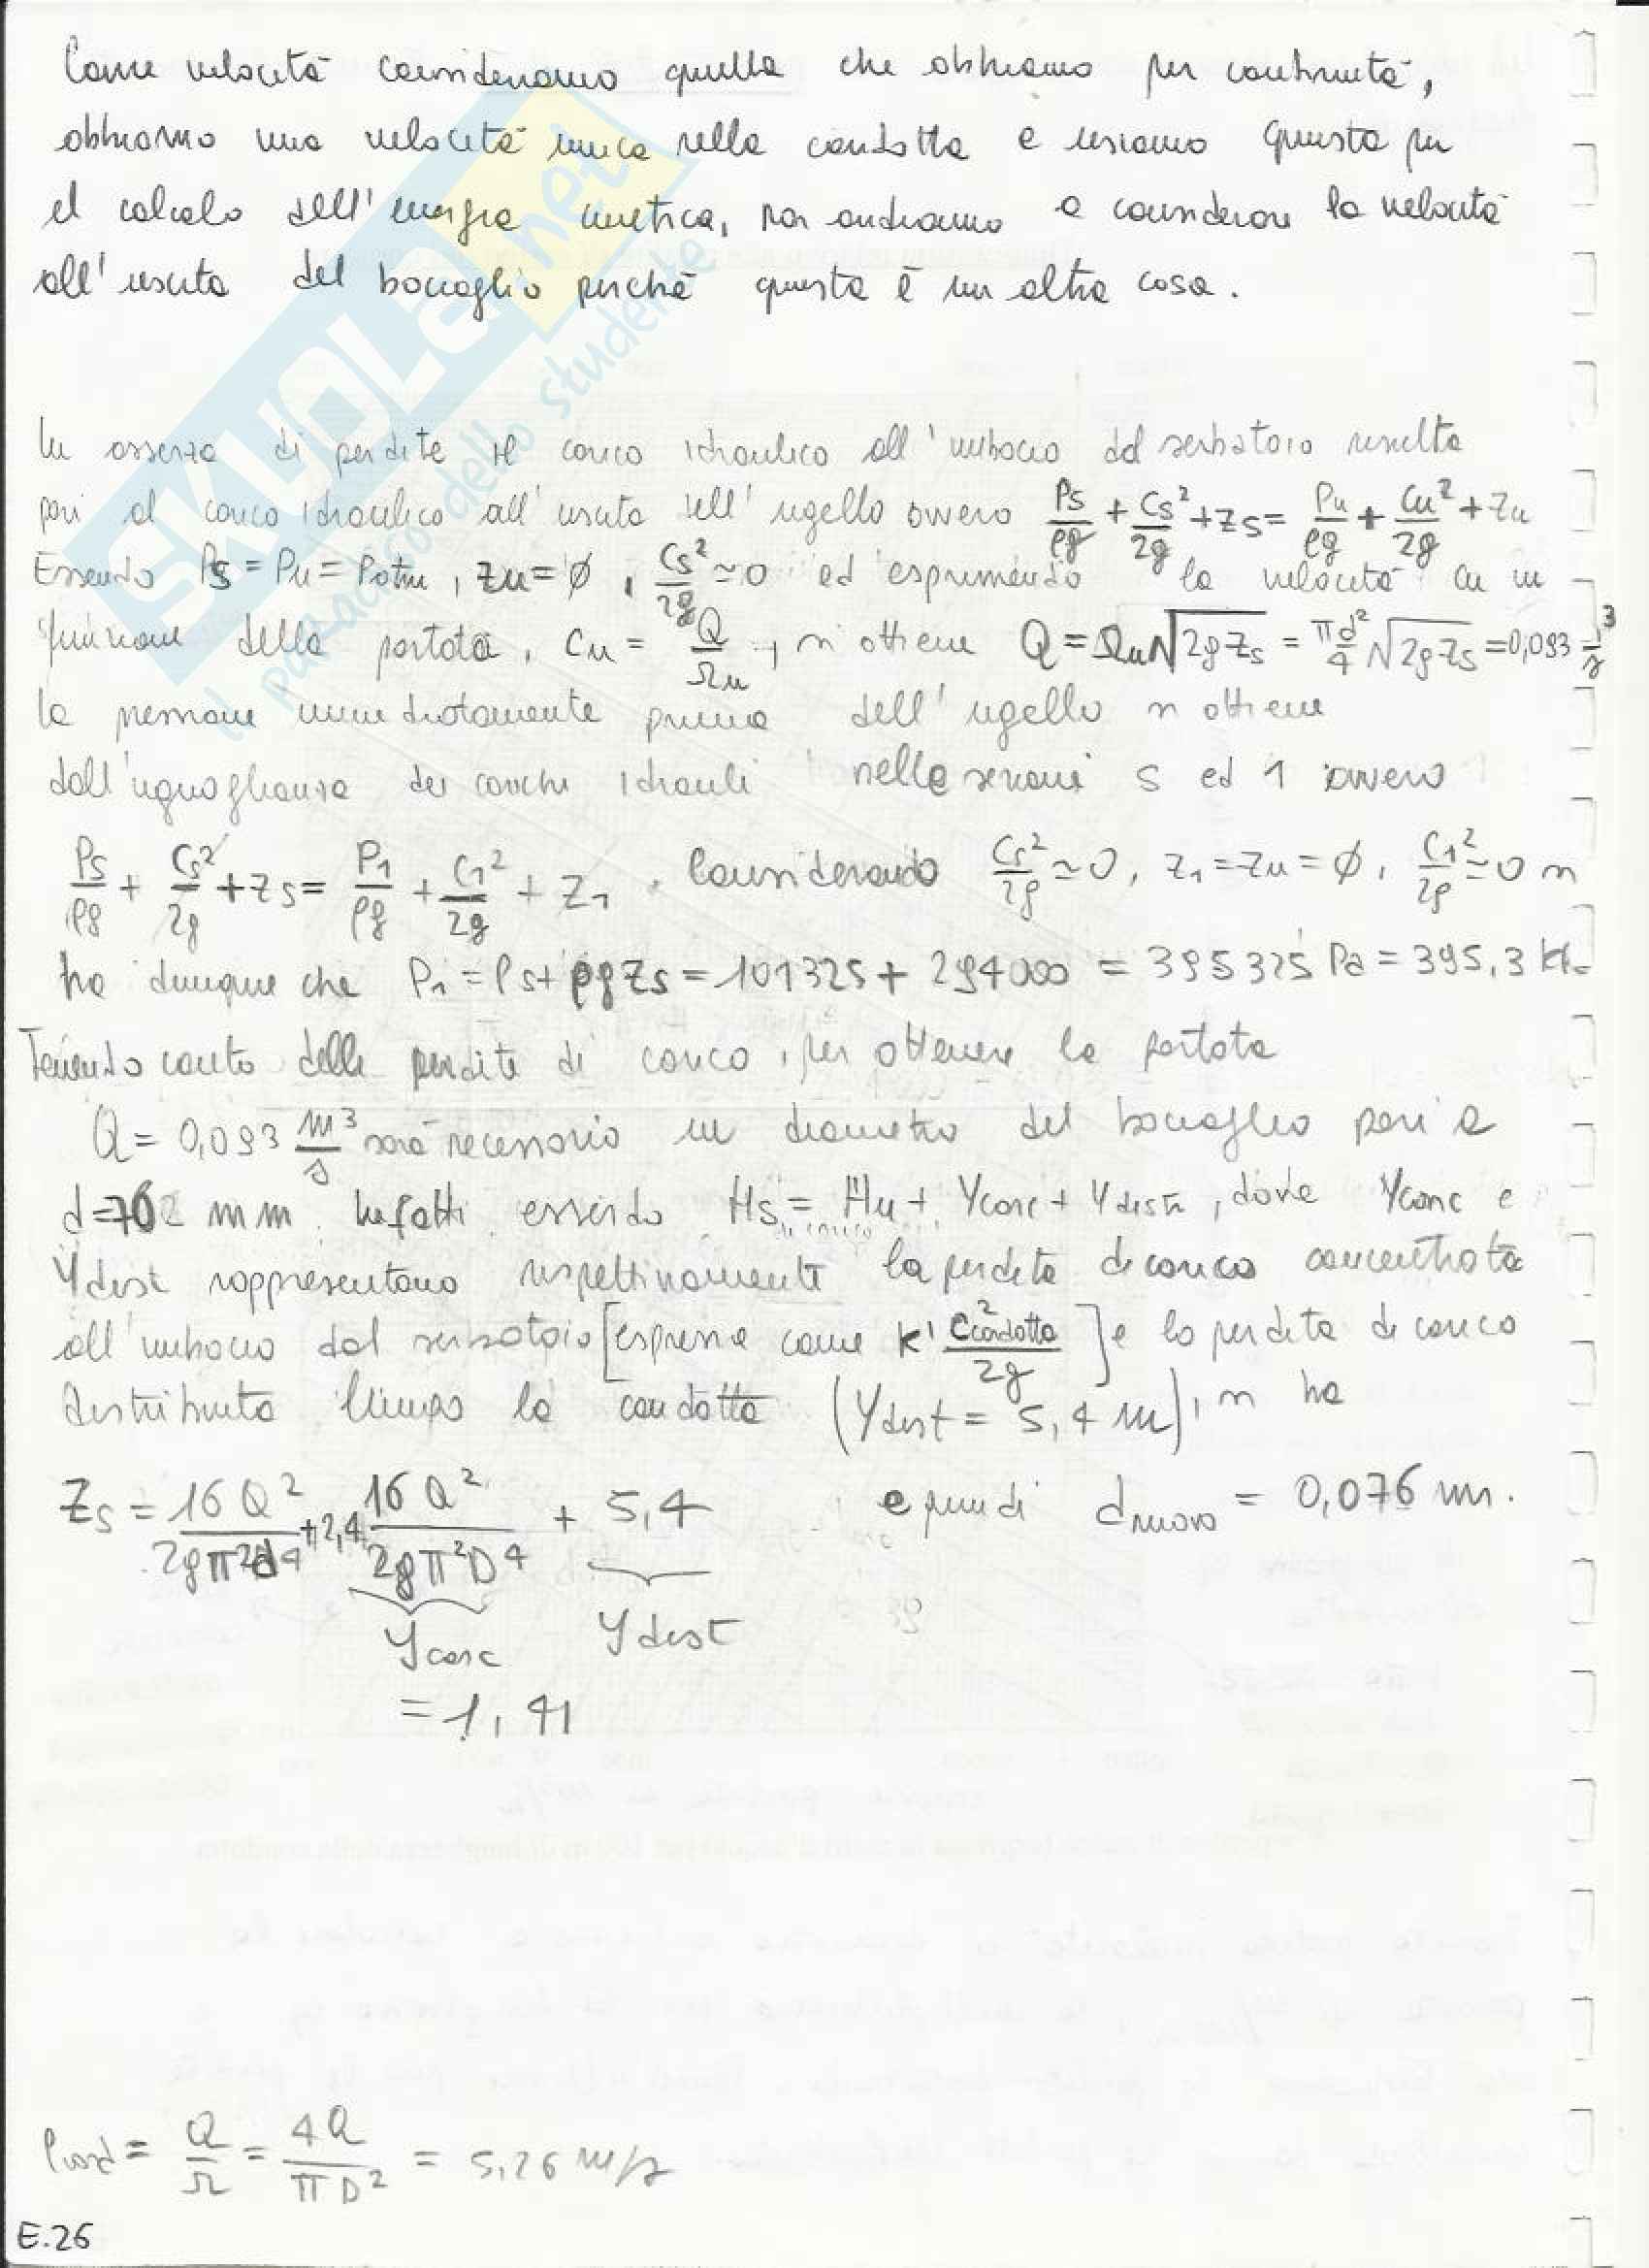 Come velocità consideriamo quella che abbiamo per continuità,
abbiamo una velocità unica nella condotta e usiamo questa per
il calcolo dell'energia cinetica, non andiamo a considerare la velocità
all'uscita del boccaglio perché questa è un altra cosa.
SKUOLA.net
il paradiso dello studente
In assenza di perdite il carico idraulico all'imbocco dal serbatoio risulta
pari al carico idraulico all'uscita dell'ugello ovvero Ps/ρg + Cs²/2g + Zs = Pu/ρg + Cu²/2g + Zu
Essendo Ps = Pu = Patm, Zu = Ø, Cs²/2g ≃ 0 ed esprimendo la velocità cu in
funzione della portata, Cu = Q/Ωu, si ottiene Q = Ωu√2gZs = πd²/4 √2gZs = 0,093 m³/s
la pressione immediatamente prima dell'ugello si ottiene
dall'uguaglianza dei carichi idrauli nelle sezioni S ed 1 ovvero
Ps/ρg + Cs²/2g + Zs = P1/ρg + C1²/2g + Z1. Considerando Cs²/2g ≃ 0, Z1 = Zu = Ø, C1²/2g ≃ 0 si
ha dunque che P1 = Ps + ρgZs = 101325 + 294000 = 395325 Pa = 395,3
Tenendo conto delle perdite di carico, per ottenere la portata
Q = 0,093 m³/s sarà necessario un diametro del boccaglio pari a
d = 76 mm. Infatti essendo Hs = Hu + Yconc + Ydistr, dove Yconc e
Ydist rappresentano rispettivamente la perdita di carico concentrata
all'imbocco dal serbatoio [espressa come K' C²condotta/2g] e la perdita di carico
distribuita lungo la condotta (Ydist = 5,4 m), si ha
Zs = 16Q²/2gπ²d⁴ + 16Q²/2gπ²D⁴ + 5,4 e quindi dnuovo = 0,076 m.
Yconc Ydist
= 1,41
Ccond = Q/Ω = 4Q/πD² = 5,26 m/s
E.26